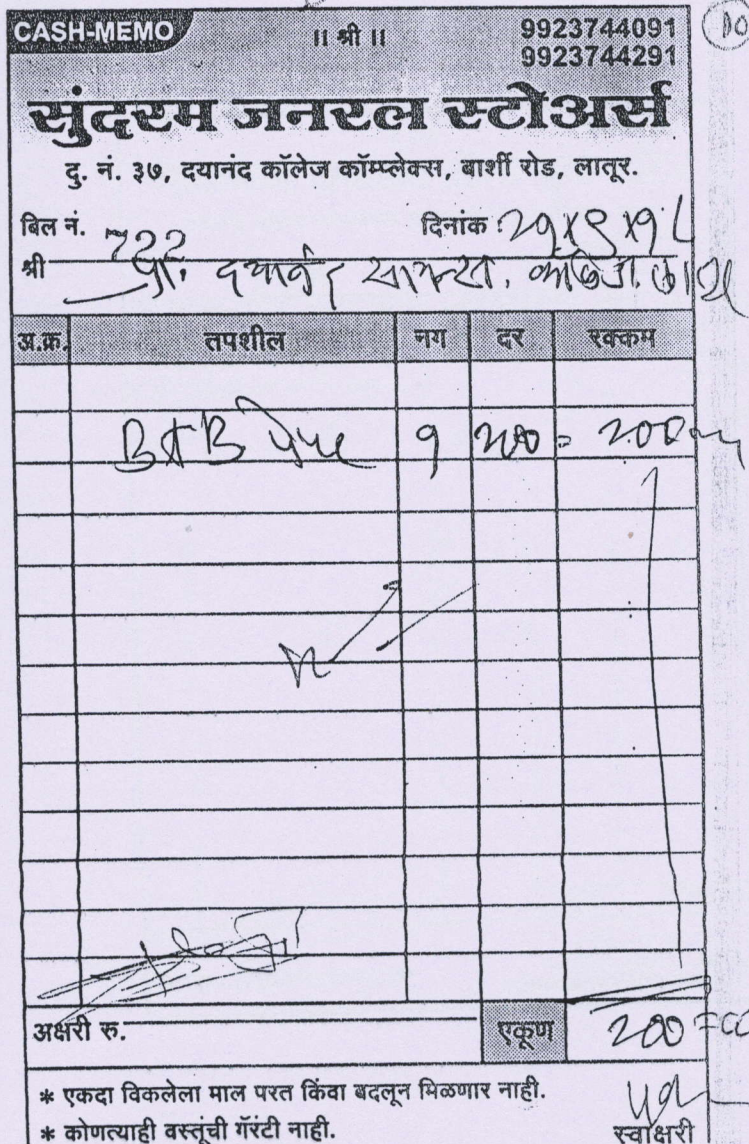 CASH-MEMO
॥ श्री ॥
9923744091
9923744291
सुंदरम जनरल स्टोअर्स
दु. नं. ३७, दयानंद कॉलेज कॉम्प्लेक्स, बार्शी रोड, लातूर.
बिल नं. 722 दिनांक
श्री प्रा. दयानंद सायन्स.
अ.क्र. तपशील नग दर रक्कम
१ 200 = 200
अक्षरी रु. एकूण 200=00
* एकदा विकलेला माल परत किंवा बदलून मिळणार नाही.
* कोणत्याही वस्तूंची गॅरंटी नाही.
स्वाक्षरी